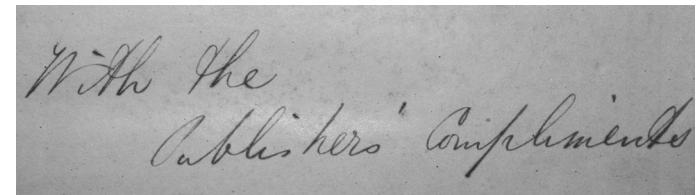 With the
Publishers' Compliments